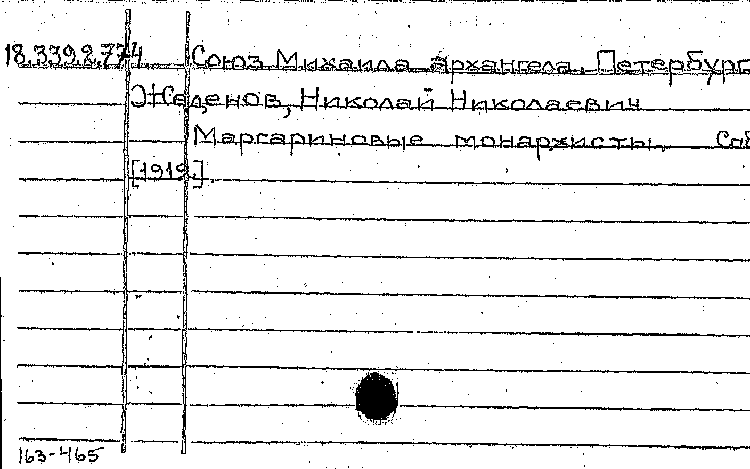 18.339.2.774 Союз Михаила архангела. Петербург
Жеденов, Николай Николаевич
Маргариновые монархисты. Спб
[1912.]
163-465